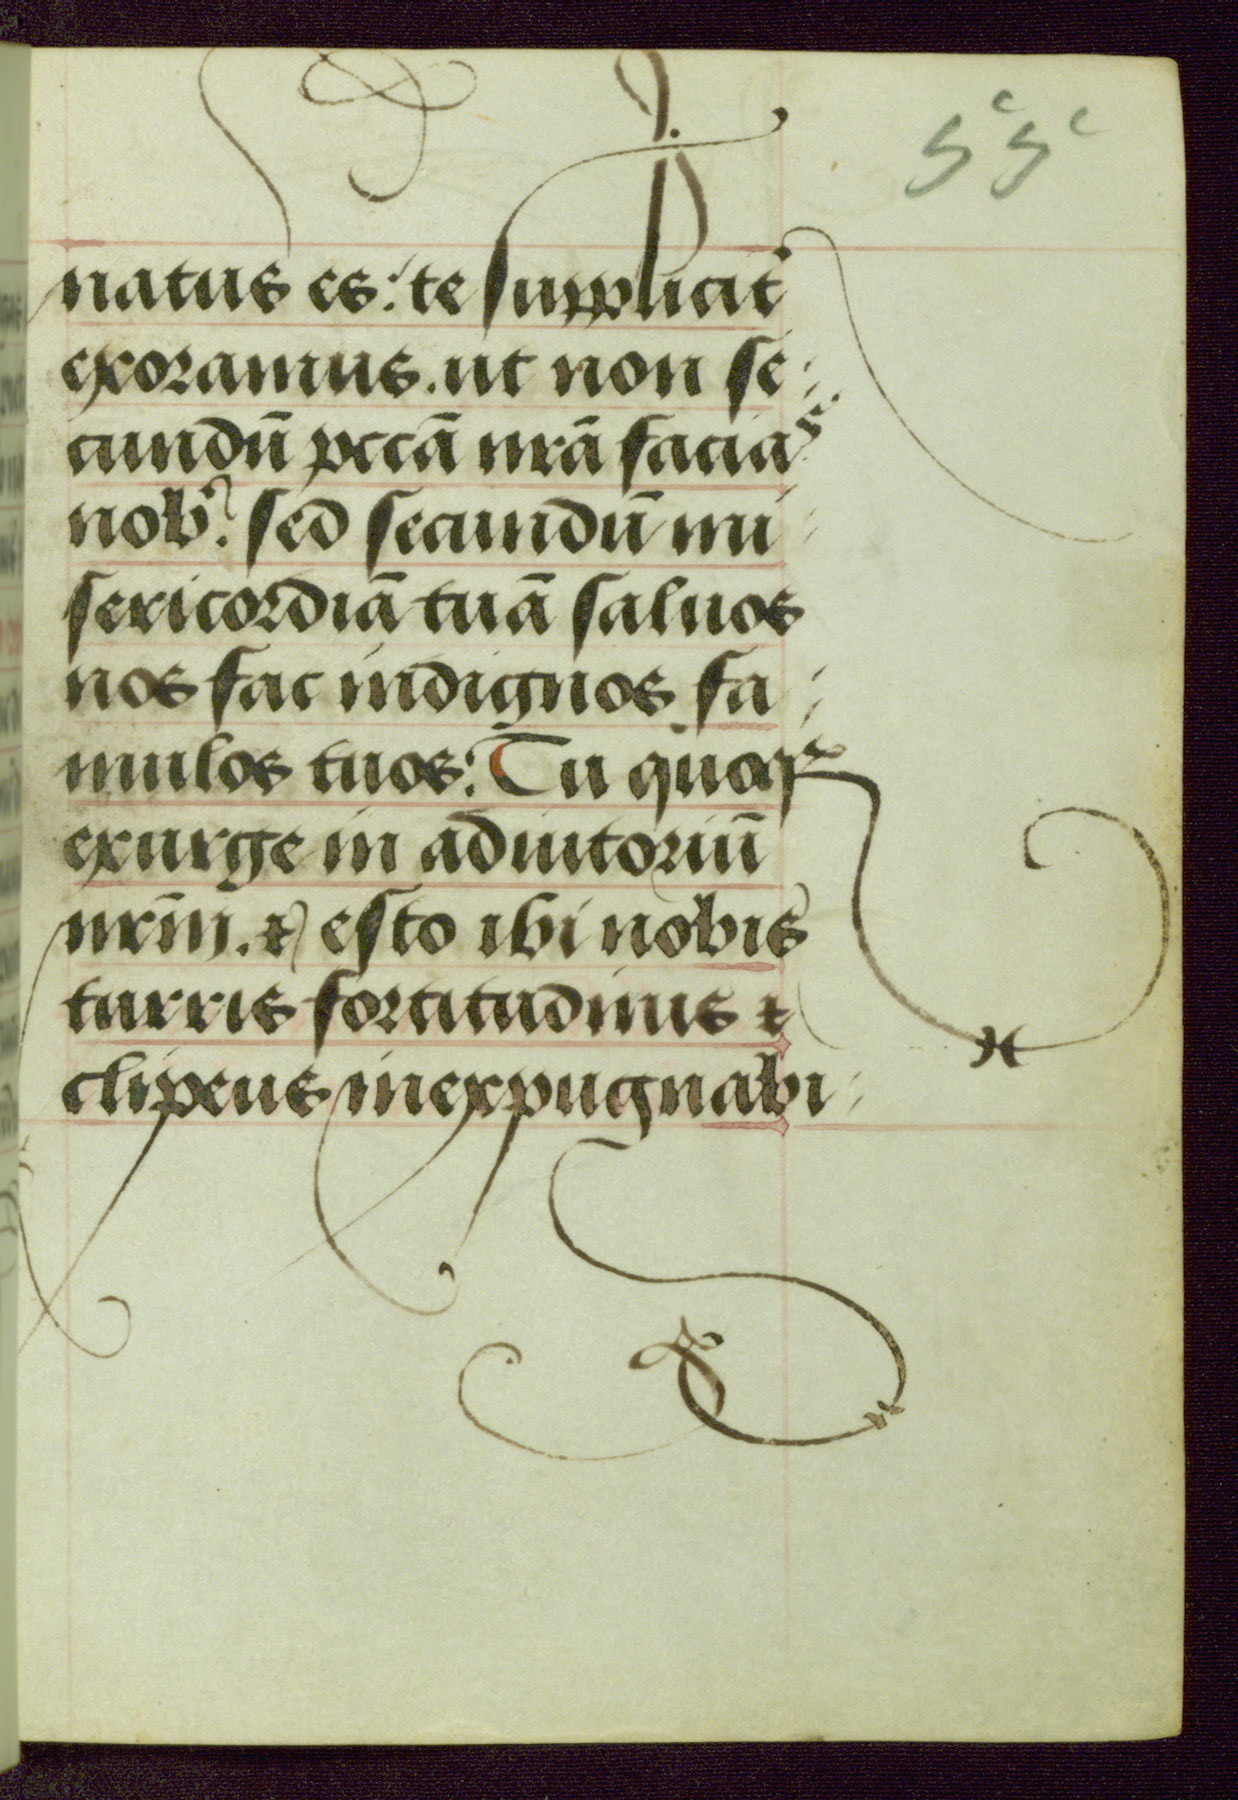 natus es: te supplicit̉
exoramus. ut non se
cundū pccā nrā facias
nob̉. sed secundū mi
sericordiā tuā saluos
nos fac indignos fa
mulos tuos: Tu quoqꝫ
exurge in adiutoriū
nrm̄. ⁊ esto ibi nobis
turris fortitudinis ⁊
clipeus inexpugnabi